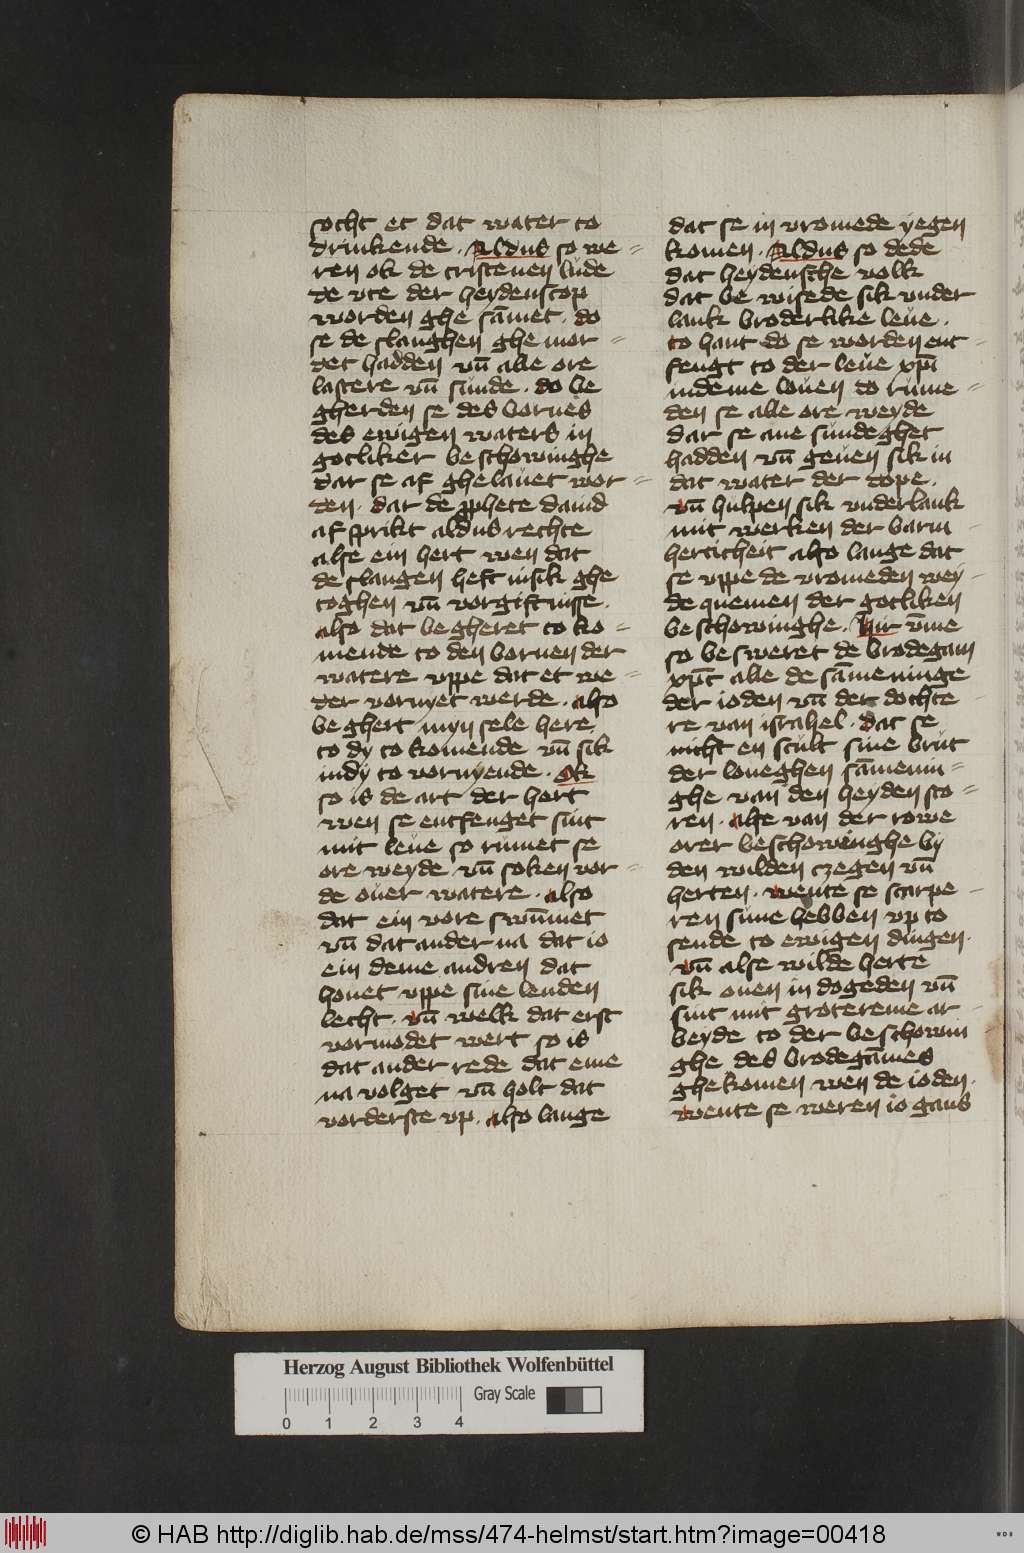 socht et dat water to
drinkende . Aldus so we=
ren ok de cristenen lude
de vte der heydenscop
worden ghe sāmet . do
se de slanghen ghe mor=
det hadden vn̄ alle ore
lastere vn̄ sunde . do be
gherden se des bornes
des ewigen waters in
gotliker beschowinghe
dar se af ghelauet wor=
den . dar de ꝓphete dauid
af sprikt aldus rechte
alse ein hert wen dat
de slangen heft in sik ghe
toghen vn̄ vorgiftnisse .
also dat begheret to ko=
mende to den bornen der
watere vppe dat et we=
der vornyet werde . also
beghert myn sele here
to dy to komende vn̄ sik
in dy to vornyende . Ok
so is de art der hert
wen se entfenget sint
mit leue so rumet se
ore weyde vn̄ soken vor=
de ouer watere . also
dat ein vore swūmet
vn̄ dat ander na dat io
ein deme andren dat
houet vppe sine lenden
lecht . vn̄ welk dat erst
vormodet wert so is
dat ander rede dat eme
na volget vn̄ holt dat
vorderste vp . also lange
dat se in vromede yegen
komen . Aldus so dede
dat heydensche volk
dat be wisede sik vnder
lank broderlike leue .
to hant do se worden ent-
fengt to der leue xp̄i
in deme louen do rume=
den se alle ore weyde
dar se ane sundeghet
hadden vn̄ geuen sik in
dat water der dope .
vn̄ hulpen sik vnderlank
mit werken der barm-
herticheit also lange dat
se vppe de vromeden wey-
de quemen der gotliken
beschowinghe . Hir v̄me
so besweret de brodegam
xp̄c alle de sāmeninge
der ioden vn̄ der dochte-
re van israhel . dat se
nicht en scult sine brut
der loueghen sāmenin=
ghe van den heyden sto=
ren . alse van der rowe
orer beschowinghe by
den wilden czegen vn̄
herten . wente se scarpe-
ren sinne hebben vp to
sende to ewigen dingen .
vn̄ alse wilde herte
sik ouen in dogeden vn̄
sint mit grotereme ar-
beyde to der beschowin-
ghe des brodegāmes
ghekomen wen de ioden .
wente se weren io gans
Herzog August Bibliothek Wolfenbüttel
Gray Scale
0 1 2 3 4
© HAB http://diglib.hab.de/mss/474-helmst/start.htm?image=00418